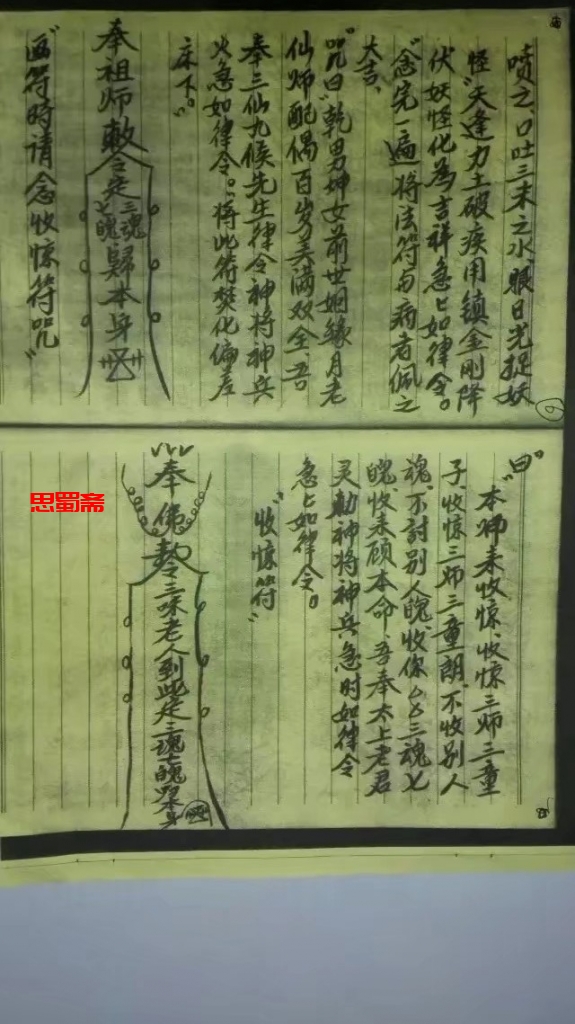 喷之、口吐三末之水、眼日光捉妖
怪"天逢力士破疾用镇金刚降
伏妖怪化为吉祥急匕如律令。
"念完一遍将法符与病者佩之
大吉、
"咒曰"乾男坤女前世姻缘月老
仙师配偶百岁美满双全、吾
奉三仙九候先生律令神将神兵
火急如律令。"将此符焚化偏差
床下。"
奉祖师敕令走三魂七魄归本身
"画符時请念收惊符咒"
曰。
"本师来收惊、收惊三师三童
子、收惊三师三童朗、不收别人
魂、不討别人魄、收你△△三魂七
魄、收来顾本命、吾奉太上老君
灵勅神将神兵急时如律令
急匕如律令。
"收惊符"
奉佛敕令三味老人到此走三魂七魄归本身
思蜀斋